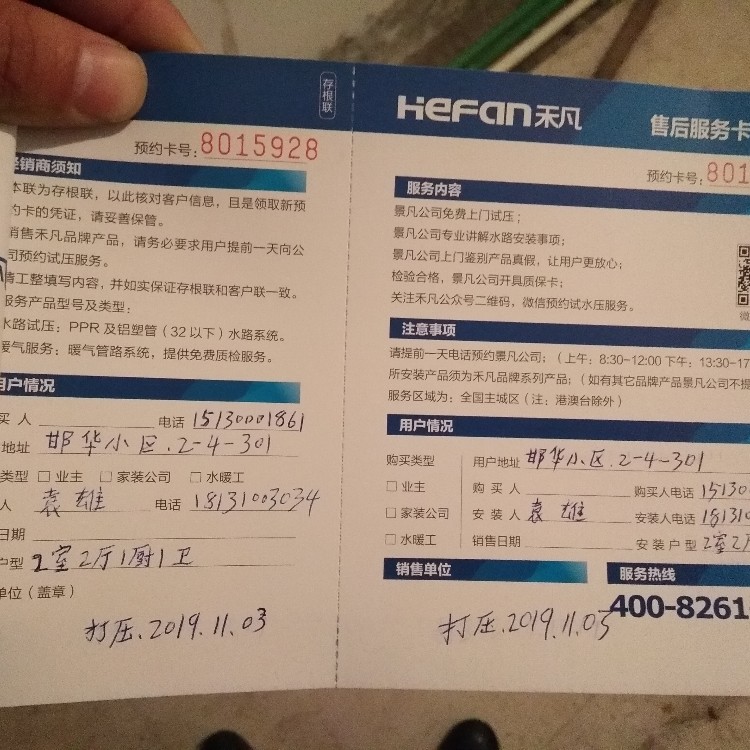 存根联
预约卡号:8015928
经销商须知
本联为存根联，以此核对客户信息，且是领取新预
约卡的凭证，请妥善保管。
销售禾凡品牌产品，请务必要求用户提前一天向公
司预约试压服务。
请工整填写内容，并如实保证存根联和客户联一致。
服务产品型号及类型：
水路试压：PPR及铝塑管（32以下）水路系统。
暖气服务：暖气管路系统，提供免费质检服务。
用户情况
买人 电话 15130001861
地址 邯华小区.2-4-301
类型 □业主 □家装公司 □水暖工
人 袁雄 电话 18131003034
日期
户型 2室2厅1厨1卫
单位（盖章）
打压.2019.11.03
HeFan禾凡
售后服务卡
预约卡号:801
服务内容
景凡公司免费上门试压；
景凡公司专业讲解水路安装事项；
景凡公司上门鉴别产品真假，让用户更放心；
检验合格，景凡公司开具质保卡；
关注禾凡公众号二维码，微信预约试水压服务。
微
注意事项
请提前一天电话预约景凡公司；（上午：8:30-12:00 下午：13:30-17
所安装产品须为禾凡品牌系列产品；（如有其它品牌产品景凡公司不提
服务区域为：全国主城区（注：港澳台除外）
用户情况
购买类型 用户地址 邯华小区.2-4-301
□业主 购买人 购买人电话 15130
□家装公司 安装人 袁雄 安装人电话 18131
□水暖工 销售日期 安装户型 2室2厅
销售单位
服务热线
400-8261
打压.2019.11.03